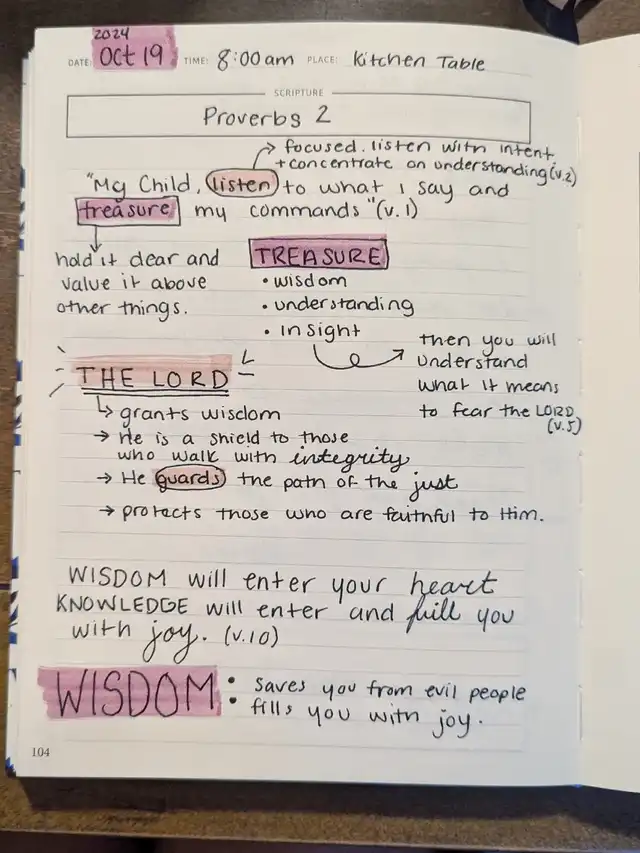 2024
DATE: Oct 19 TIME: 8:00am PLACE: Kitchen Table
SCRIPTURE
Proverbs 2
focused. listen with intent
+ concentrate on understanding (v.2)
"My Child, listen to what I say and
treasure my commands" (v.1)
hold it dear and
value it above
other things.
TREASURE
• wisdom
• understanding
• insight
then you will
understand
what it means
to fear the LORD
(v.5)
THE LORD
↳ grants wisdom
→ He is a shield to those
who walk with integrity
→ He guards the path of the just
→ protects those who are faithful to Him.
WISDOM will enter your heart
KNOWLEDGE will enter and fill you
with joy. (v.10)
WISDOM
• saves you from evil people
• fills you with joy.
104